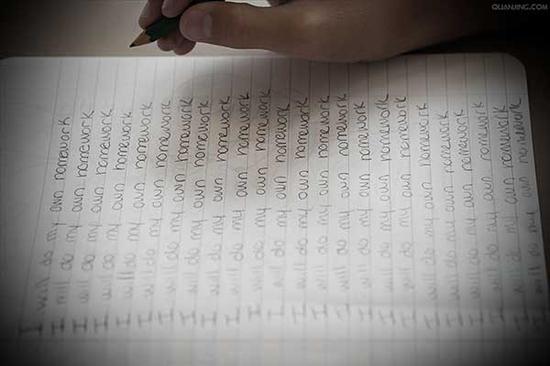 QUANJING.COM
I will do my own homework
I will do my own homework
I will do my own homework
I will do my own homework
I will do my own homework
I will do my own homework
I will do my own homework
I will do my own homework
I will do my own homework
I will do my own homework
I will do my own homework
I will do my own homework
I will do my own homework
I will do my own homework
I will do my own homework
I will do my own homework
I will do my own homework
I will do my own homework
I will do my own homework
I will do my own homework
I will do my own homework
I will do my own homework
I will do my own homework
my own homework